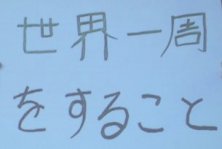 世界一周
をすること